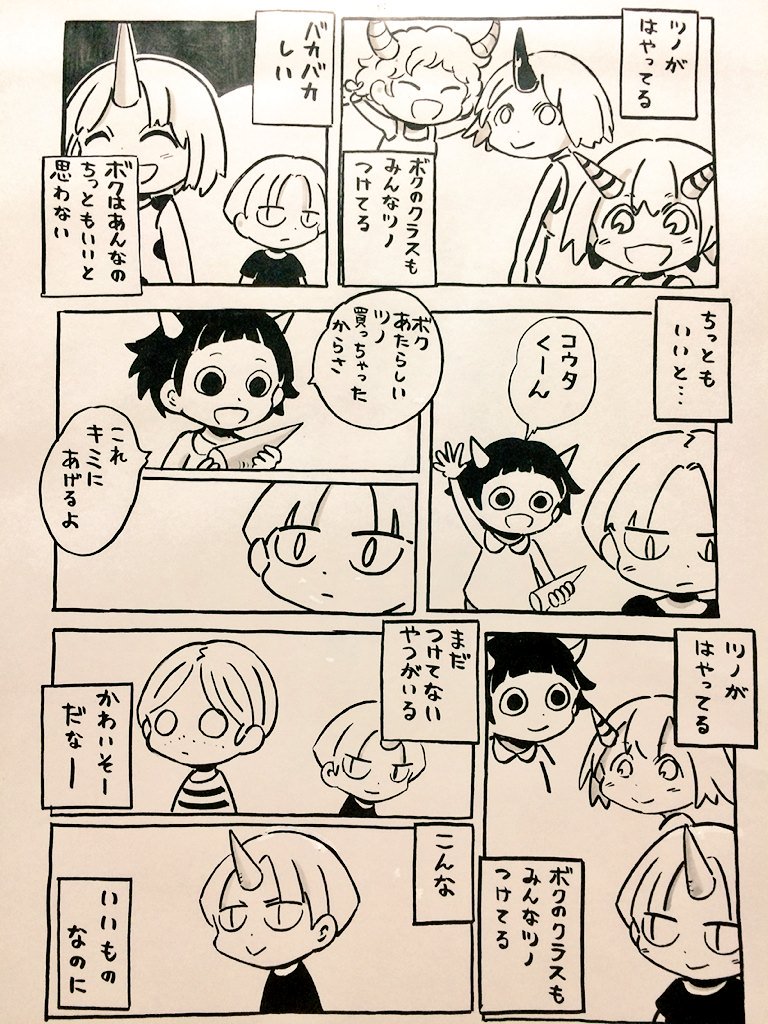 ツノが
はやってる
ボクのクラスも
みんなツノ
つけてる
バカバカ
しい
ボクはあんなの
ちっともいいと
思わない
ちっとも
いいと…
コウタ
くーん
ボク
あたらしい
ツノ
買っちゃった
からさ
これ
キミに
あげるよ
ツノが
はやってる
ボクのクラスも
みんなツノ
つけてる
まだ
つけてない
やつがいる
かわいそー
だなー
こんな
いいもの
なのに